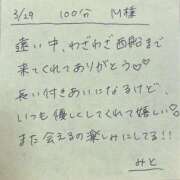 3/29 100分 M様
遠い中、わざわざ西船まで
来てくれてありがとう♡♡
長い付きあいになるけど、
いつも優しくしてくれて嬉しい♡
また会えるの楽しみにしてる!!
みと